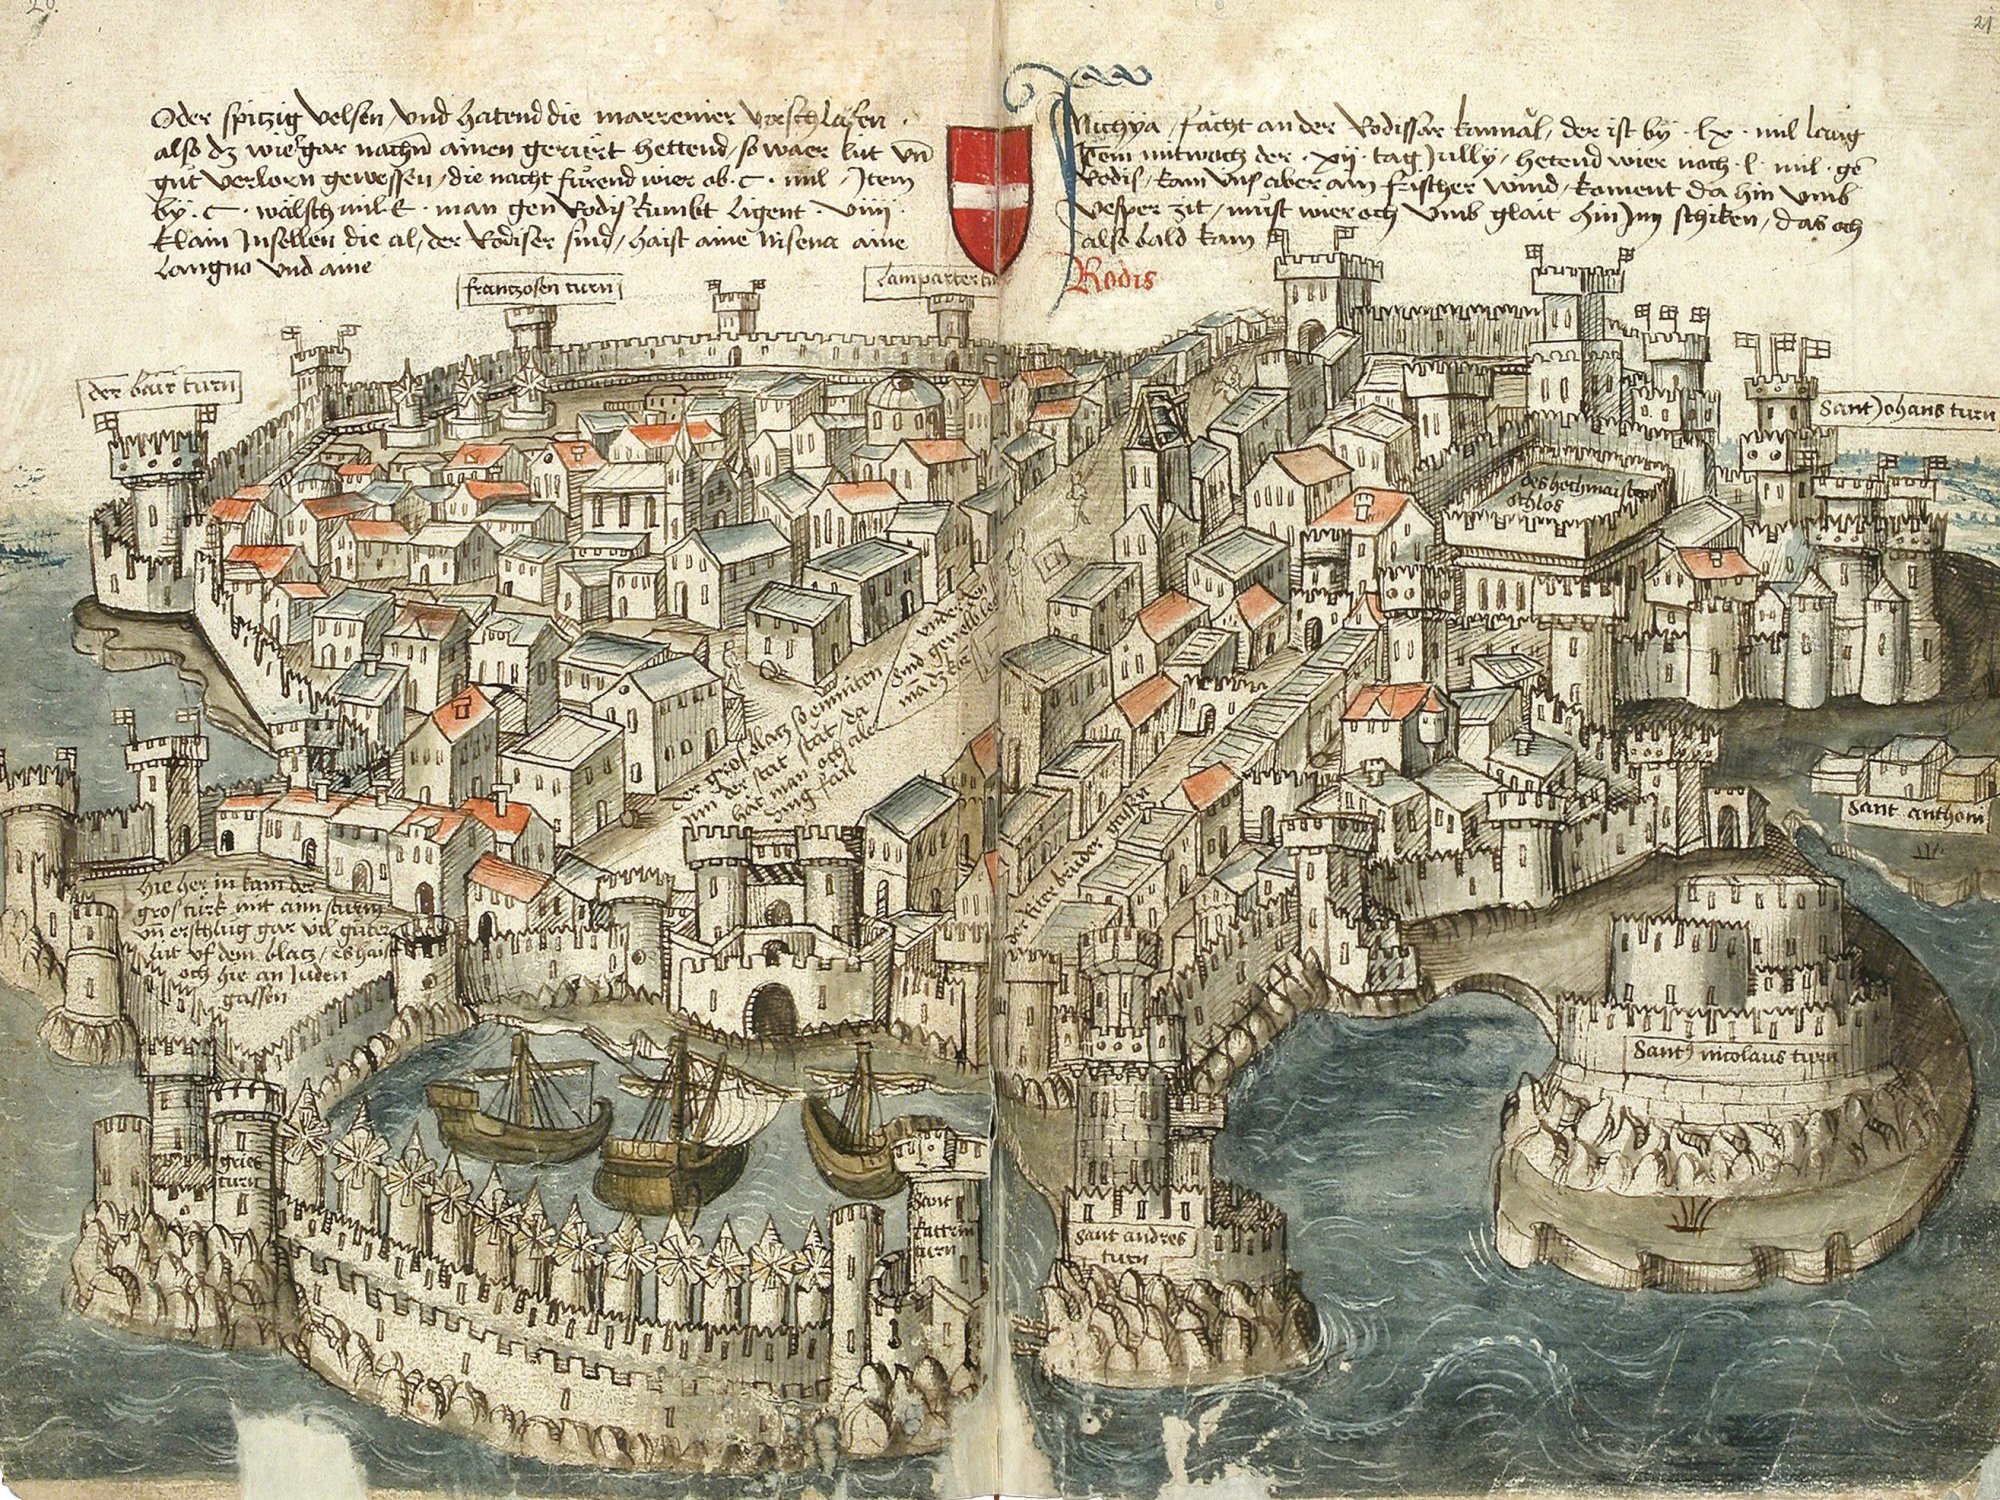 20.
21
Oder spitzig velsen, vnd hatend die marrenier verschlaffen.
also dz wier gar nachñ ainen geriert hettend, so waer lut vñ
gůt verlorn gewessen, die nacht fůrend wier ob .C. mil, Item
by .C. wälsch mil. E. man gen Rodis kumbt ligent .viiij.
klain Insellen die al, der Rodiser sind, haist aine Nisena aine
Langno vnd aine
Nichya, facht an der Rodissar kannal, der ist by .lx. mil lang
Item mitwoch der .xij. tag Jully, hetend wier noch .l. mil. gē
Rodis, kam vns aber ain frischer wind, koment da hin vmb
vesper zit, můst wier och vmb glait hin Jnn schiken, das och
also bald kam
Rodis
frantzosen turn
Lamparter tu
der bair turn
Sant Johans turn
des hochmaisters
schlos
vnder den
sind gewelbles
ma dz kor
der gros blatz so enmiten
jnn der stat stat, da
hat man och ale
ding fail
der ritter brůder gassen
Sant anthoni
hie her in kam der
gros türk mit ainn sturm
vñ erschlug gar vil gůter
lüt vf dem blatz, es haist
och hie an Juden
gassen
Sant nicolaus turn
gries
turn
Sant
kattrin
turn
Sant andres
turn